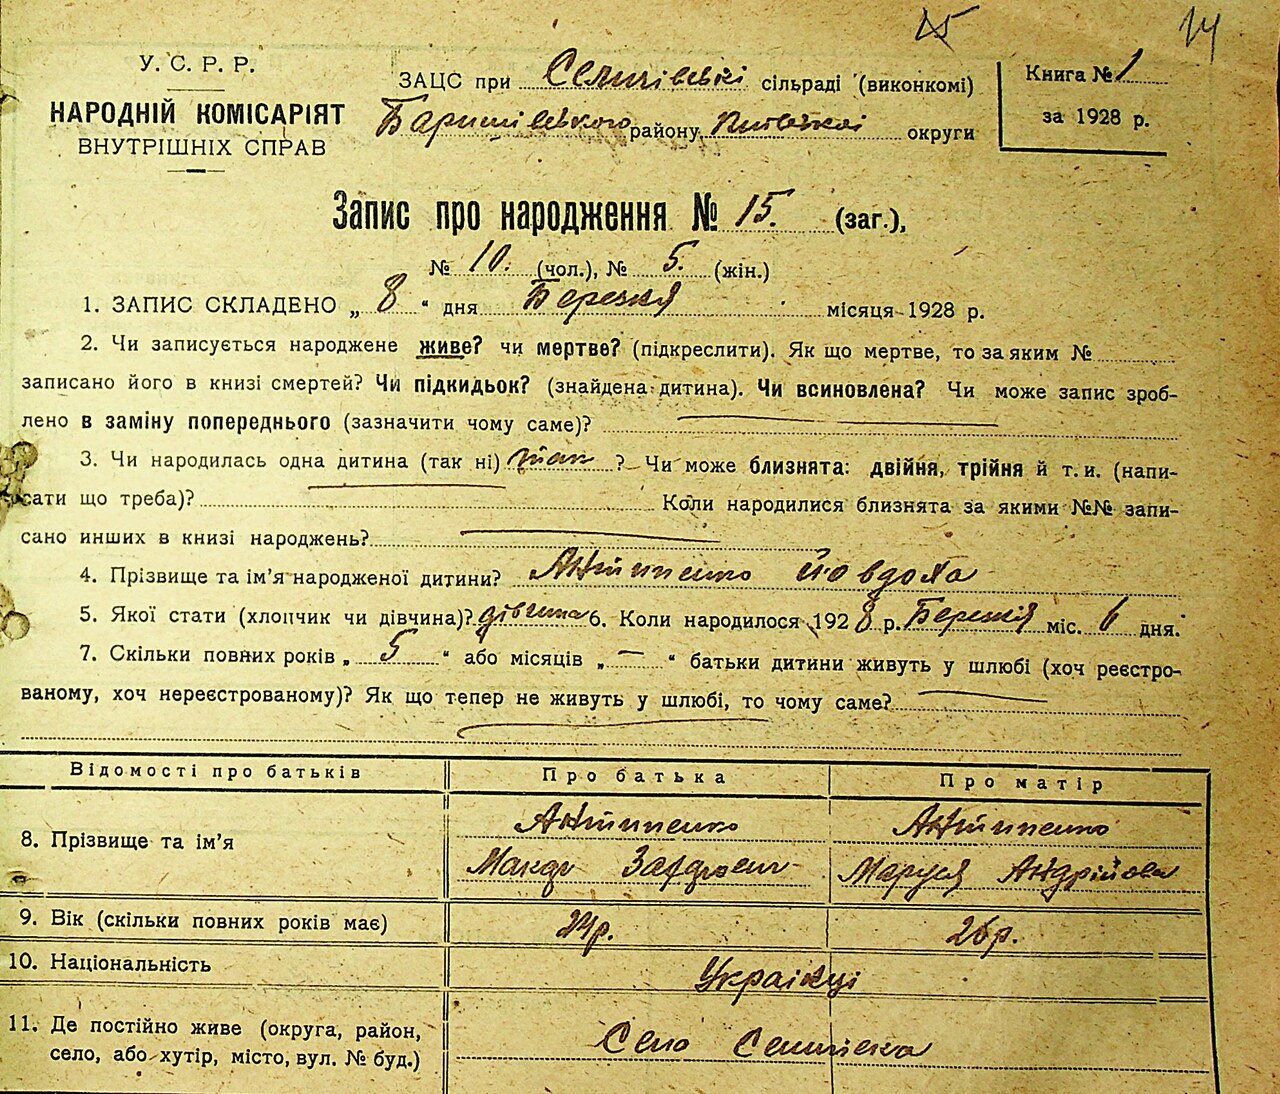 14
У. С. Р. Р.
НАРОДНІЙ КОМІСАРІЯТ
ВНУТРІШНІХ СПРАВ
ЗАЦС при Селищівські сільраді (виконкомі)
Баришівського району, Київської округи
Книга № 1
за 1928 р.
Запис про народження № 15. (заг.),
№ 10. (чол.), № 5. (жін.)
1. ЗАПИС СКЛАДЕНО „ 8 “ дня Березня місяця 1928 р.
2. Чи записується народжене живе? чи мертве? (підкреслити). Як що мертве, то за яким №
записано його в книзі смертей? Чи підкидьок? (знайдена дитина). Чи всиновлена? Чи може запис зроб-
лено в заміну попереднього (зазначити чому саме)?
3. Чи народилась одна дитина (так ні) так ? Чи може близнята: двійня, трійня й т. и. (напи-
сати що треба)? Коли народилися близнята за якими №№ запи-
сано инших в книзі народжень?
4. Прізвище та ім’я народженої дитини? Антипенко Йовдоха
5. Якої стати (хлопчик чи дівчина)? дівчина 6. Коли народилося 1928 р. Березня міс. 6 дня.
7. Скільки повних років „ 5 “ або місяців „ — “ батьки дитини живуть у шлюбі (хоч реєстро-
ваному, хоч нереєстрованому)? Як що тепер не живуть у шлюбі, то чому саме?
Відомості про батьків Про батька Про матір
8. Прізвище та ім’я Антипенко Антипенко
Макар Захарович Маруся Андрійова
9. Вік (скільки повних років має) 24р. 26р.
10. Національність Українці
11. Де постійно живе (округа, район,
село, або хутір, місто, вул. № буд.) Село